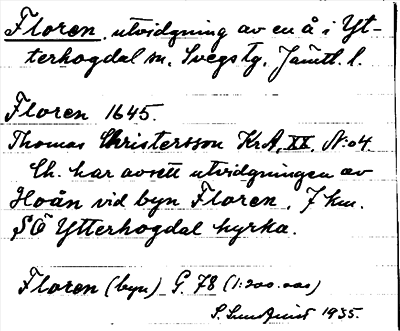 Floren, utvidgning av en å i Yt-
terhogdal sn. Svegs tg. Jämtl. l.
Floren 1645.
Thomas Christersson KrA, XX, N:o 4.
Ch. har avsett utvidgningen av
Hoån vid byn Floren, 7 km.
SÖ Ytterhogdal kyrka.
Floren (byn) G. 78 (1:200.000)
S. Sundqvist 1935.